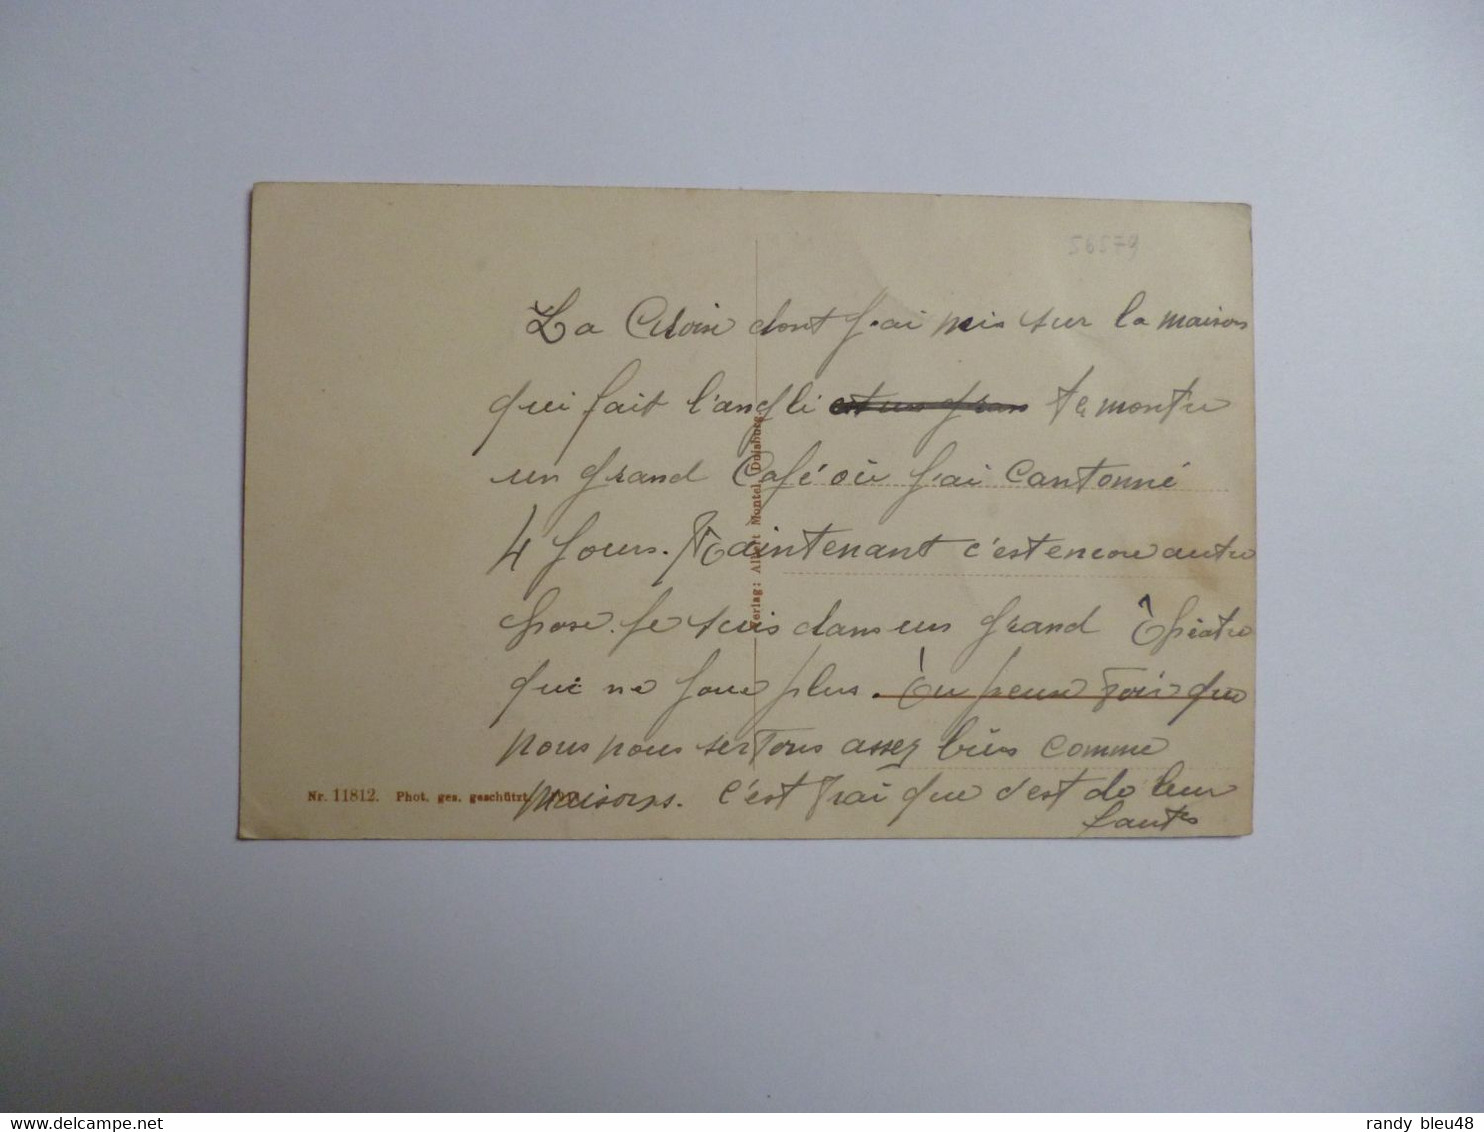 56579
La Croix dont j'ai mis sur la maison
qui fait l'angli est un gran te montre
un grand Café où j'ai Cantonné
4 jours. Maintenant c'est encore autre
chose. Je suis dans un grand Théatre
qui ne joue plus. Tu peux voir que
nous nous sertons assez bien comme
maisons. C'est vrai que c'est de leur
fautes
Verlag: Albert Montel, Duisburg.
Nr. 11812. Phot. ges. geschützt.
randy bleu48